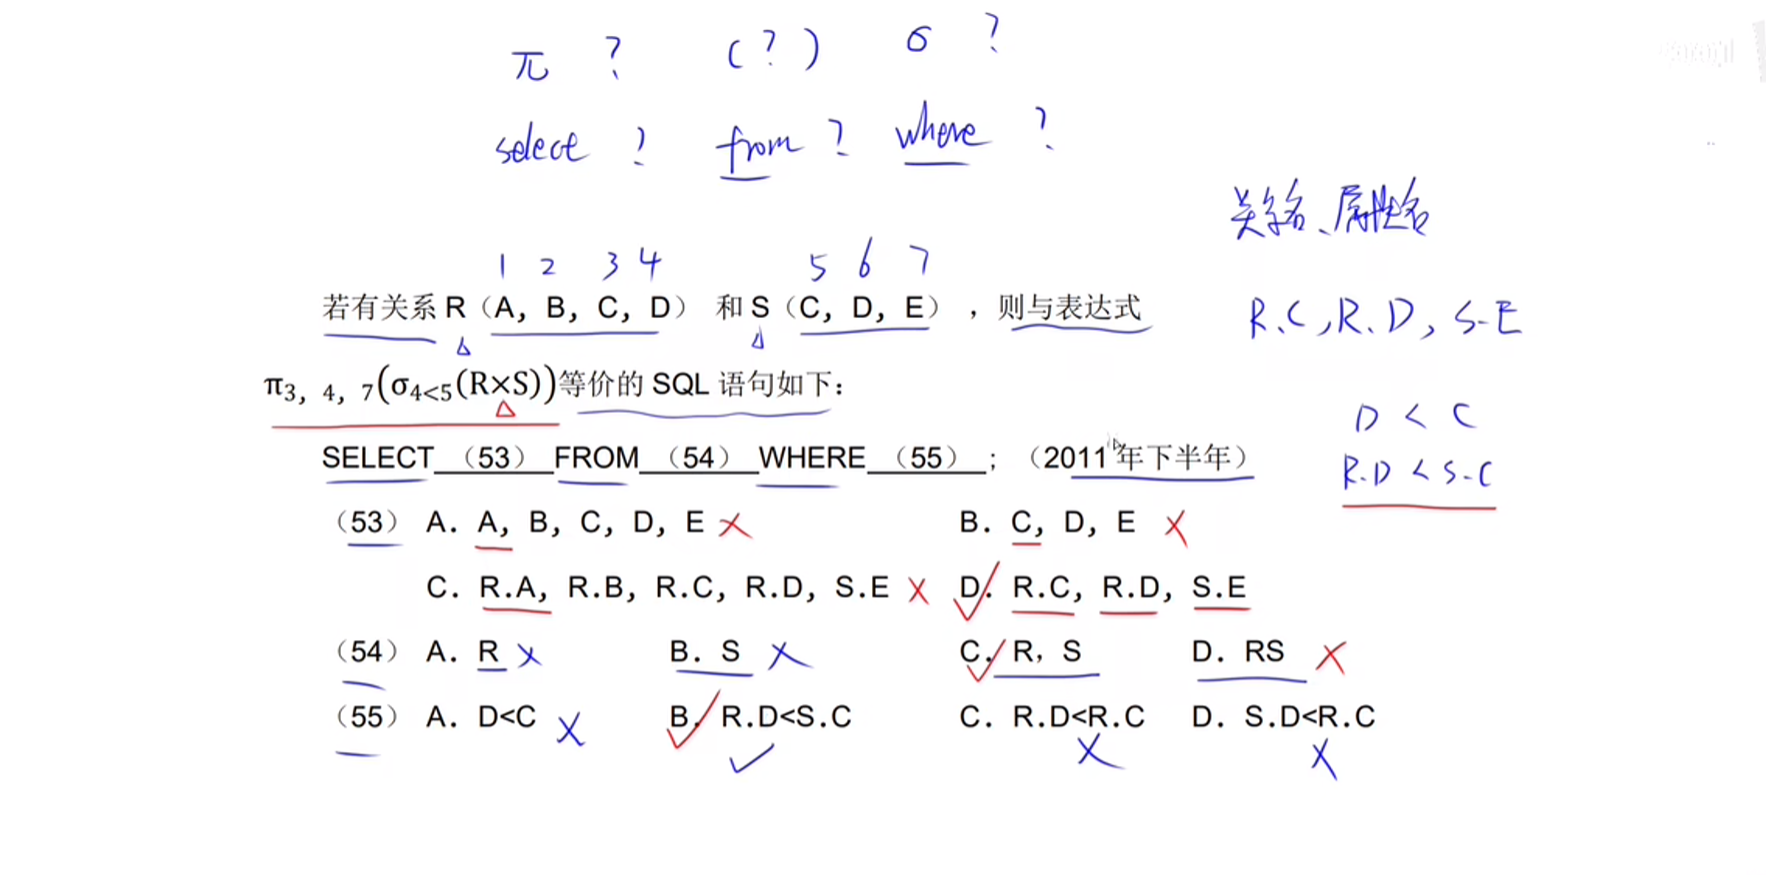 π ? (?) σ ?
select ? from ? where ?
关系名、属性名
1 2 3 4 5 6 7
若有关系 R（A, B, C, D） 和 S（C, D, E），则与表达式
R.C, R.D, S.E
π3, 4, 7(σ4<5(R×S))等价的 SQL 语句如下：
D < C
SELECT （53） FROM （54） WHERE （55） ；（2011年下半年）
R.D < S.C
（53） A. A, B, C, D, E × B. C, D, E ×
C. R.A, R.B, R.C, R.D, S.E × D. R.C, R.D, S.E
（54） A. R × B. S × C. R, S D. RS ×
（55） A. D<C × B. R.D<S.C C. R.D<R.C D. S.D<R.C
× ×